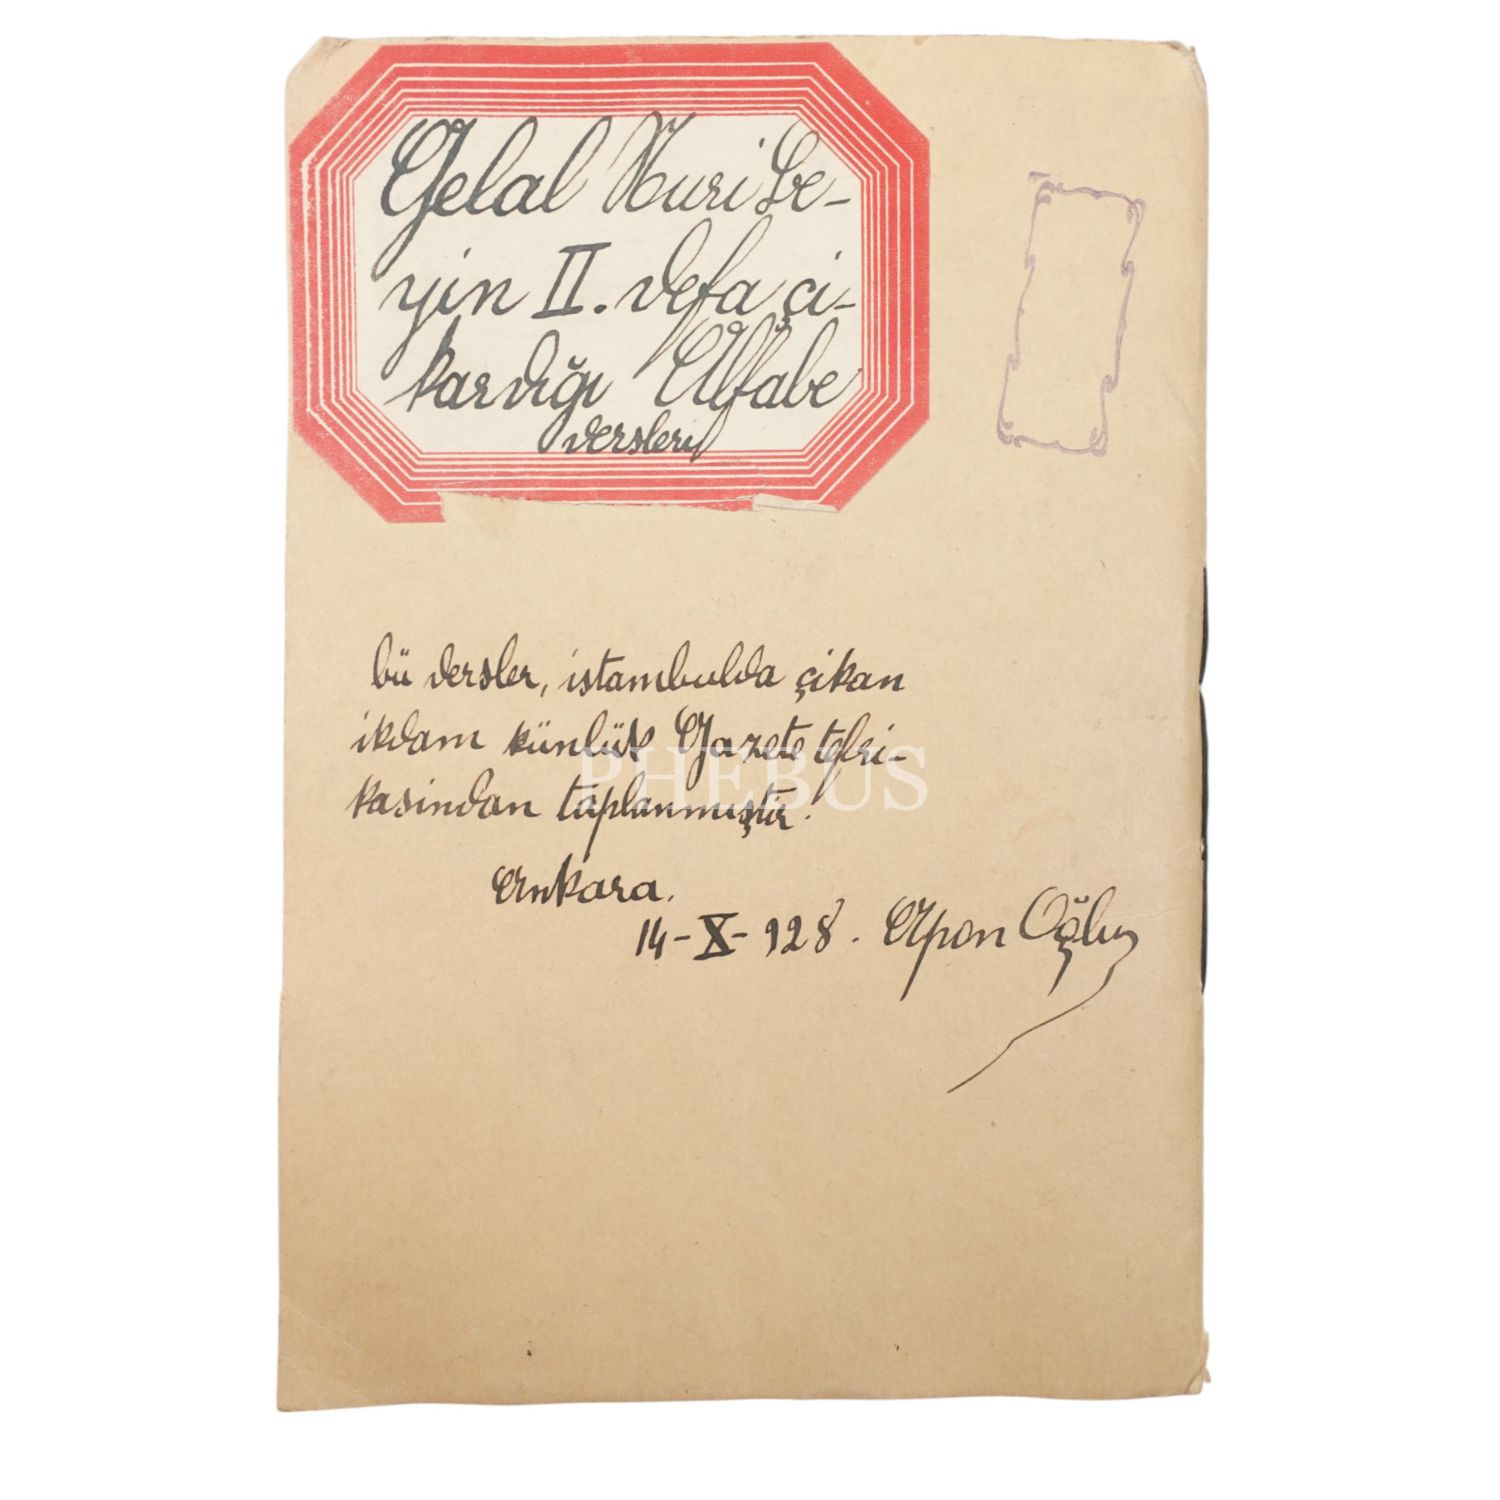 Gelal Nuri be-
yin II. defa çi-
kardığı Alfabe
dersleri
bü dersler, istambulda çikan
ikdam künlük Gazete tefri-
kasindan taplanmıştir.
Ankara.
14-X-928. Apon Oğlu
PHEBUS